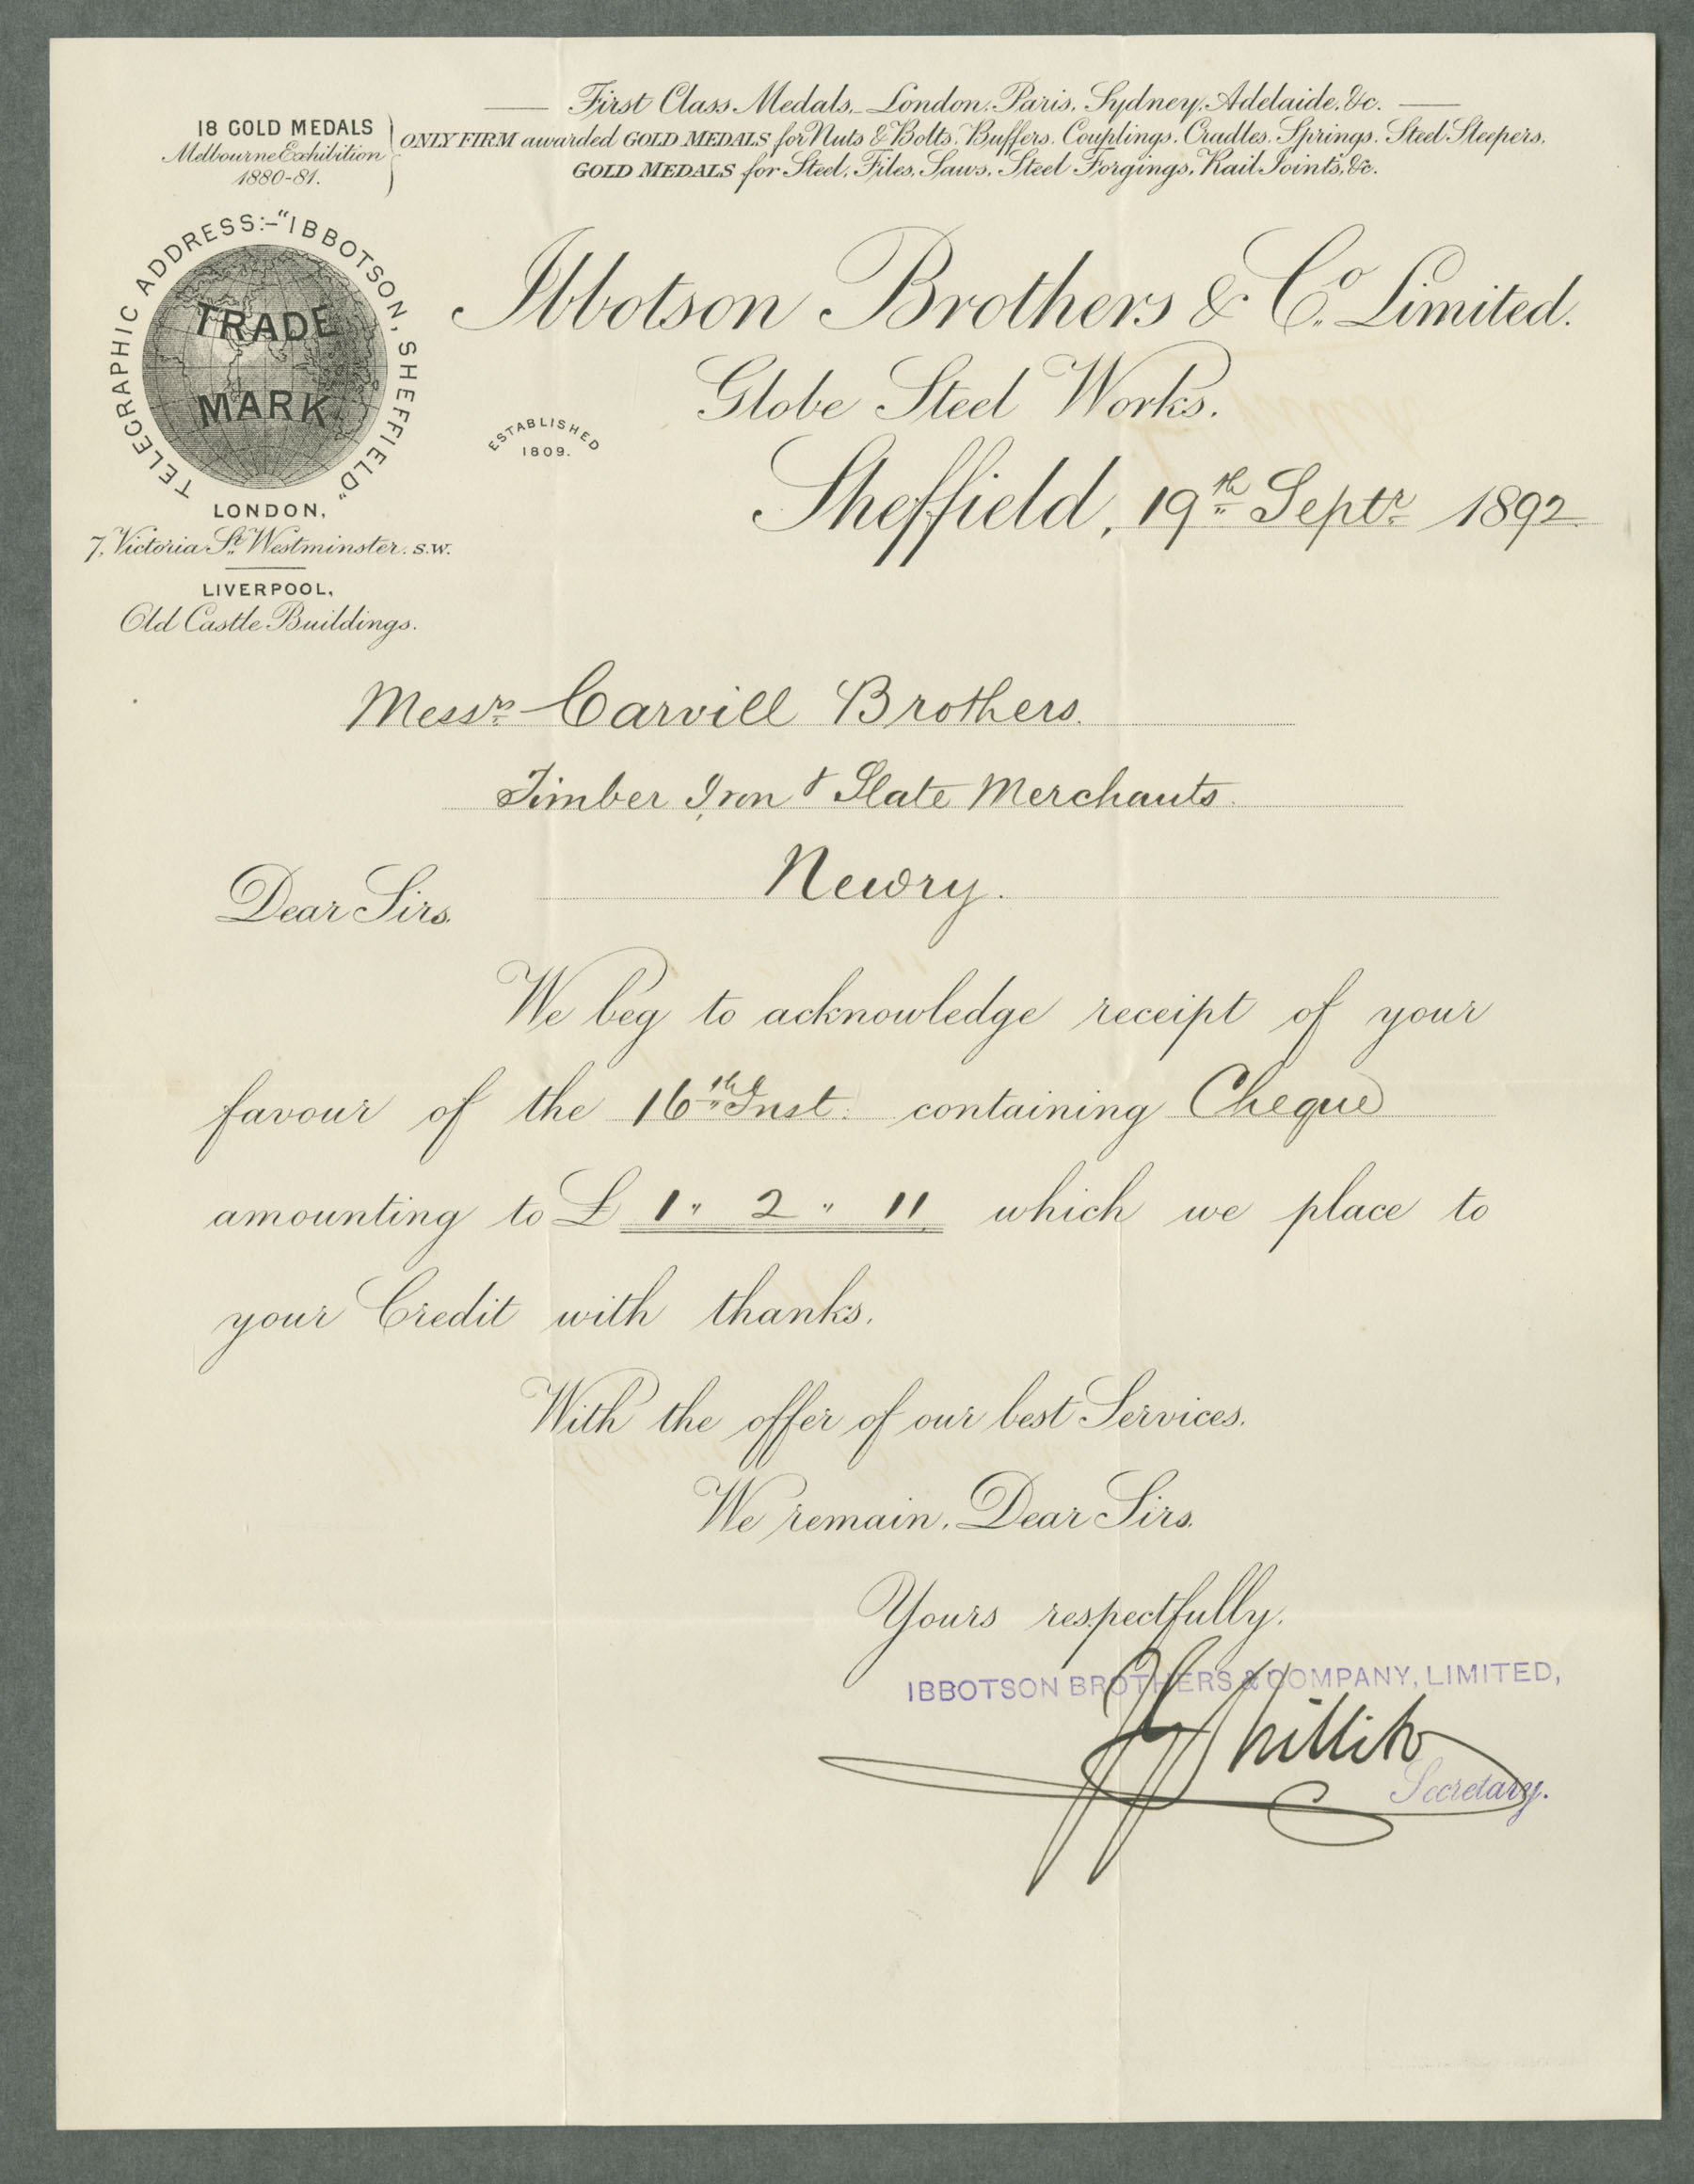 First Class Medals, London, Paris, Sydney, Adelaide, &c.
18 GOLD MEDALS
Melbourne Exhibition
1880-81.
ONLY FIRM awarded GOLD MEDALS for Nuts & Bolts, Buffers, Couplings, Cradles, Springs, Steel Sleepers,
GOLD MEDALS for Steel, Files, Saws, Steel Forgings, Rail Joints, &c.
TELEGRAPHIC ADDRESS:-"IBBOTSON, SHEFFIELD"
TRADE
MARK
Ibbotson Brothers & Co. Limited.
Globe Steel Works.
ESTABLISHED
1809.
Sheffield, 19th Septr 1892
LONDON,
7, Victoria St. Westminster. S.W.
LIVERPOOL,
Old Castle Buildings.
Messrs Carvill Brothers.
Timber Iron & Slate Merchants.
Newry.
Dear Sirs.
We beg to acknowledge receipt of your
favour of the 16th Inst. containing Cheque
amounting to £ 1 " 2 " 11 which we place to
your Credit with thanks.
With the offer of our best Services.
We remain, Dear Sirs.
Yours respectfully.
IBBOTSON BROTHERS & COMPANY, LIMITED,
Secretary.